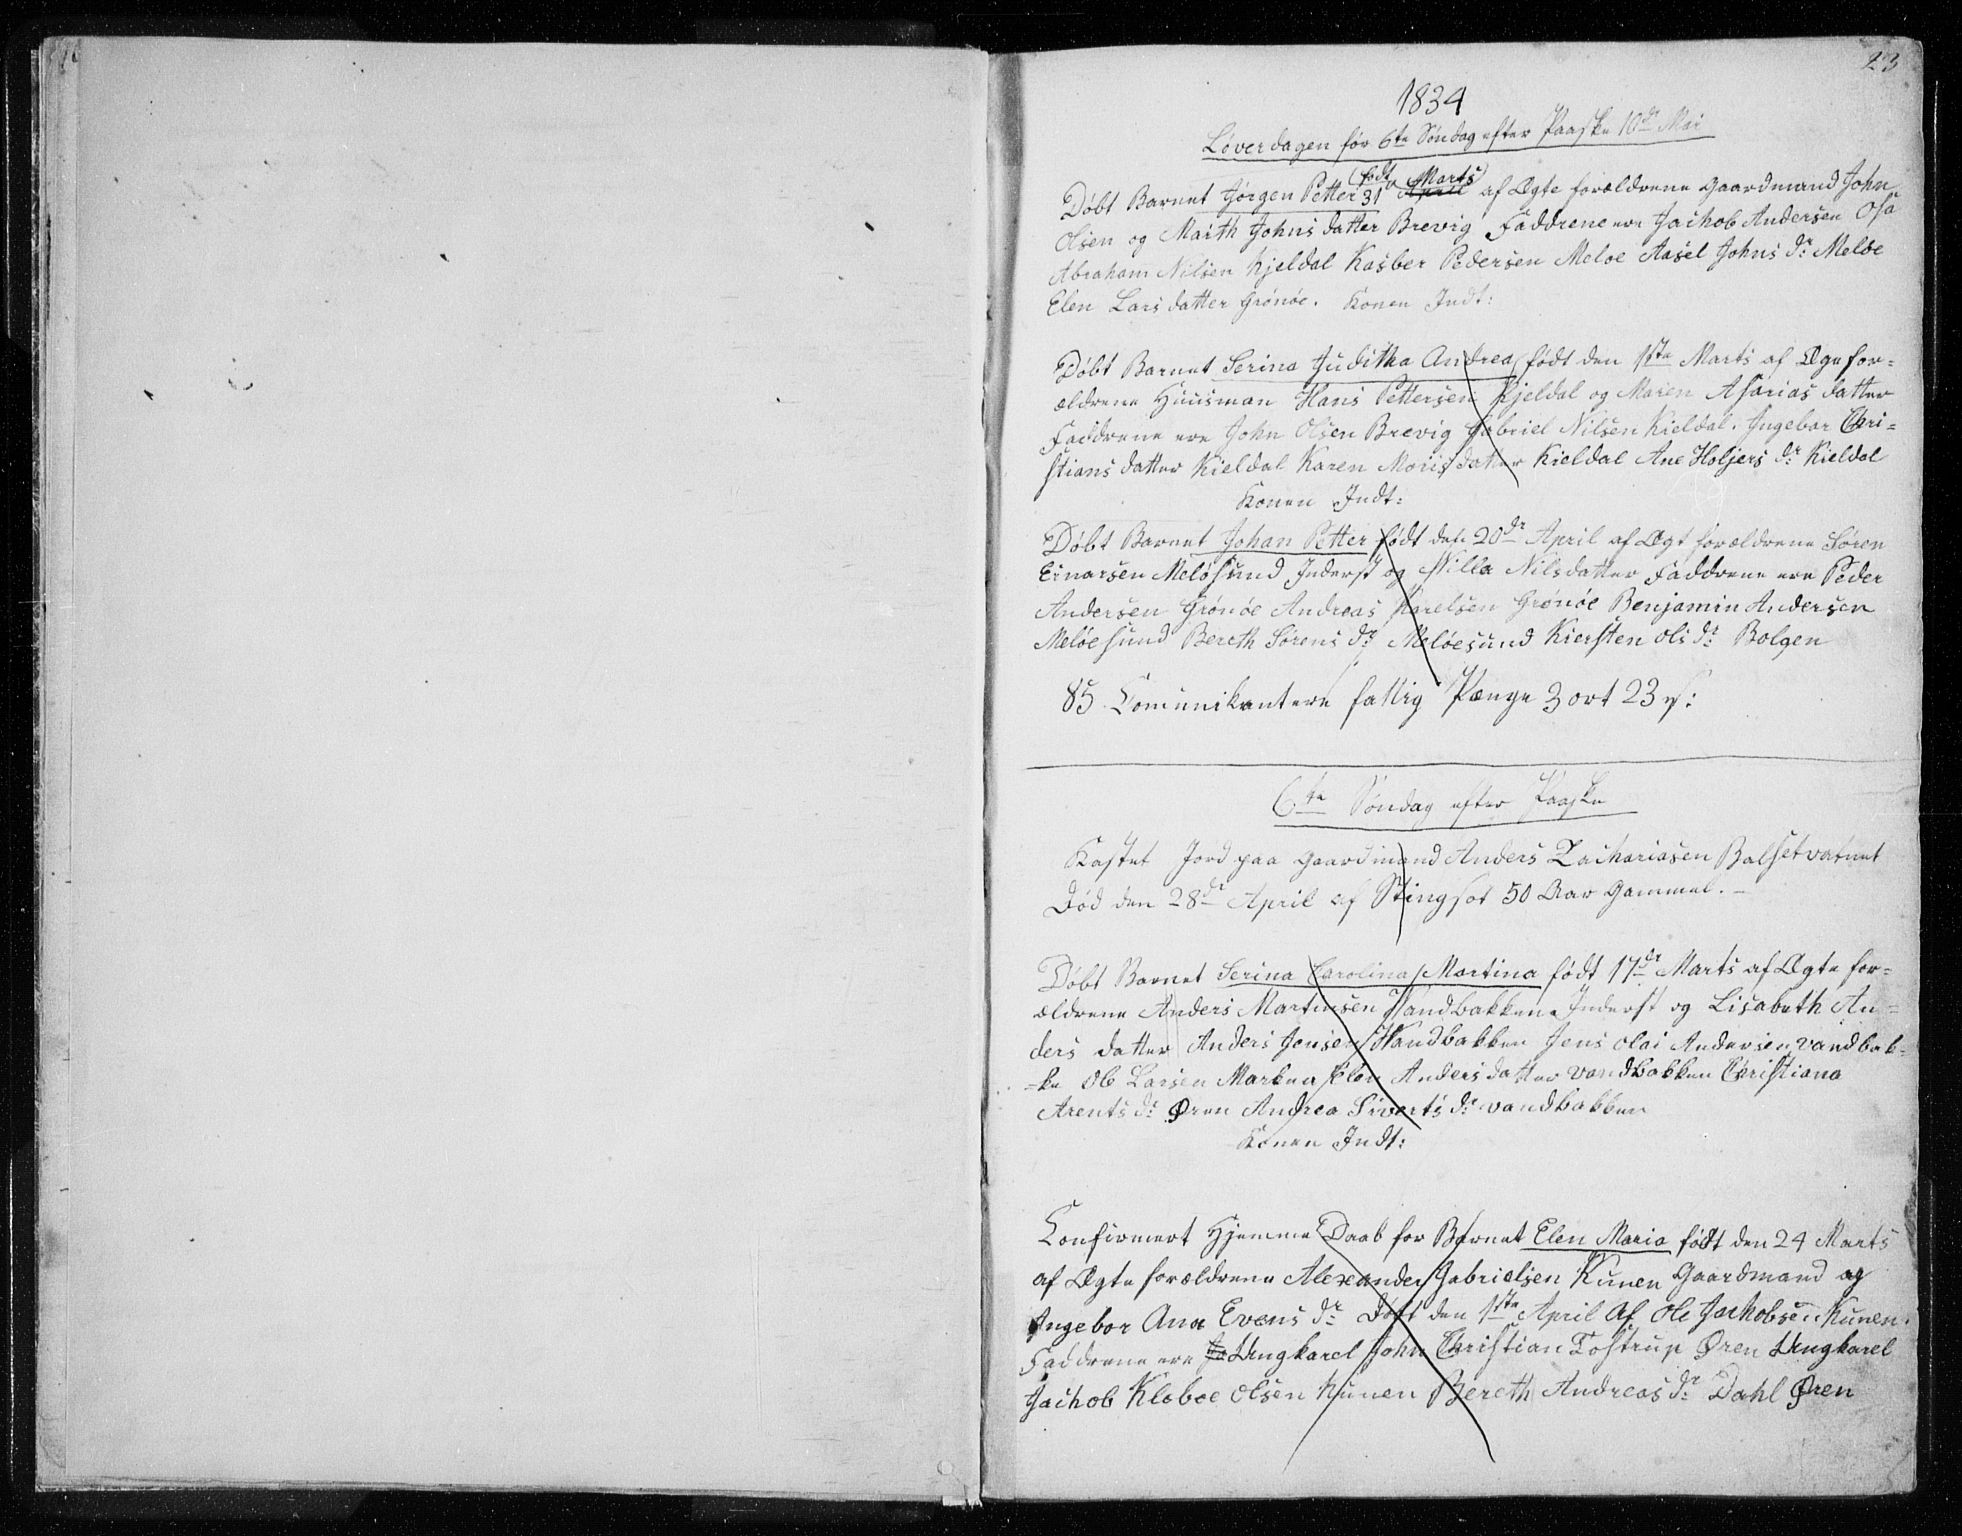 23
1834
Løverdagen før 6te Søndag efter Paaske 10de Mai
Døbt Barnet Jørgen Petter født 31 April Marts af Ægte forældrene Gaardmand John
Olsen og Marth Johns datter Brevig Faddrene ere Jachob Andersen
Abraham Nilsen Kjeldal Kasber Pedersen Meløe Aasel Johns dr Meløe
Elen Lars datter Grönöe. Konen Indt:
Døbt Barnet Serina Juditha Andrea født den 1ste Marts af Ægefor=
ældrene Huusman Hans Pettersen Kjeldal og Maren Asarias datter
Faddrene ere John Olsen Brevig Gabriel Nilsen Kieldal. Ingebor Chri=
stians datter Kieldal Karen Moris datter Kieldal Ane Holjers dr Kieldal
Konen Indt:
Døbt Barnet Johan Petter født den 20de April af Ægt forældrene Søren
Einarsen Meløsund Inderst og Nilsdatter Faddrene ere Peder
Andersen Grönöe Andreas Karelsen Grönöe Benjamin Andersen
Meløesund Bereth Sørens dr Meløesund Kiersten Ols dr Bolgen
85 Comunikantere fattig Pænge 3 ort 23 s:
6te Søndag efter Paaske
Kastet Jord paa Gaardmand Anders Zachariasen Balsetvatnet
Død den 28de April af Stingsot 50 Aar Gammel. –
Døbt Barnet Serina Carolina Martina født 17de Marts af Ægte for=
ældrene Anders Martinsen Vandbakken Inderst og Lisabeth An=
ders datter Anders Jensen Vandbakken Jens Olai Andersen Vandbak=
=ke Ole Larsen Elen Anders datter Vandbakken Christiana
Arents dr Øren Andrea Siverts dr Vandbakken
Konen Indt:
Confirmert Hjemme Daab for Barnet Elen Maria født den 24 Marts
af Ægte forældrene Alexander Gabrielsen Kunen Gaardmand og
Ingebor Ana Evens dr Døbt den 1ste April af Ole Jachobsen Kunen.
Faddrene ere Ungkarel John Christian Tostrup Øren Ungkarel
Jachob Kloboe Olsen Kunen Bereth Andreas dr Dahl Øren